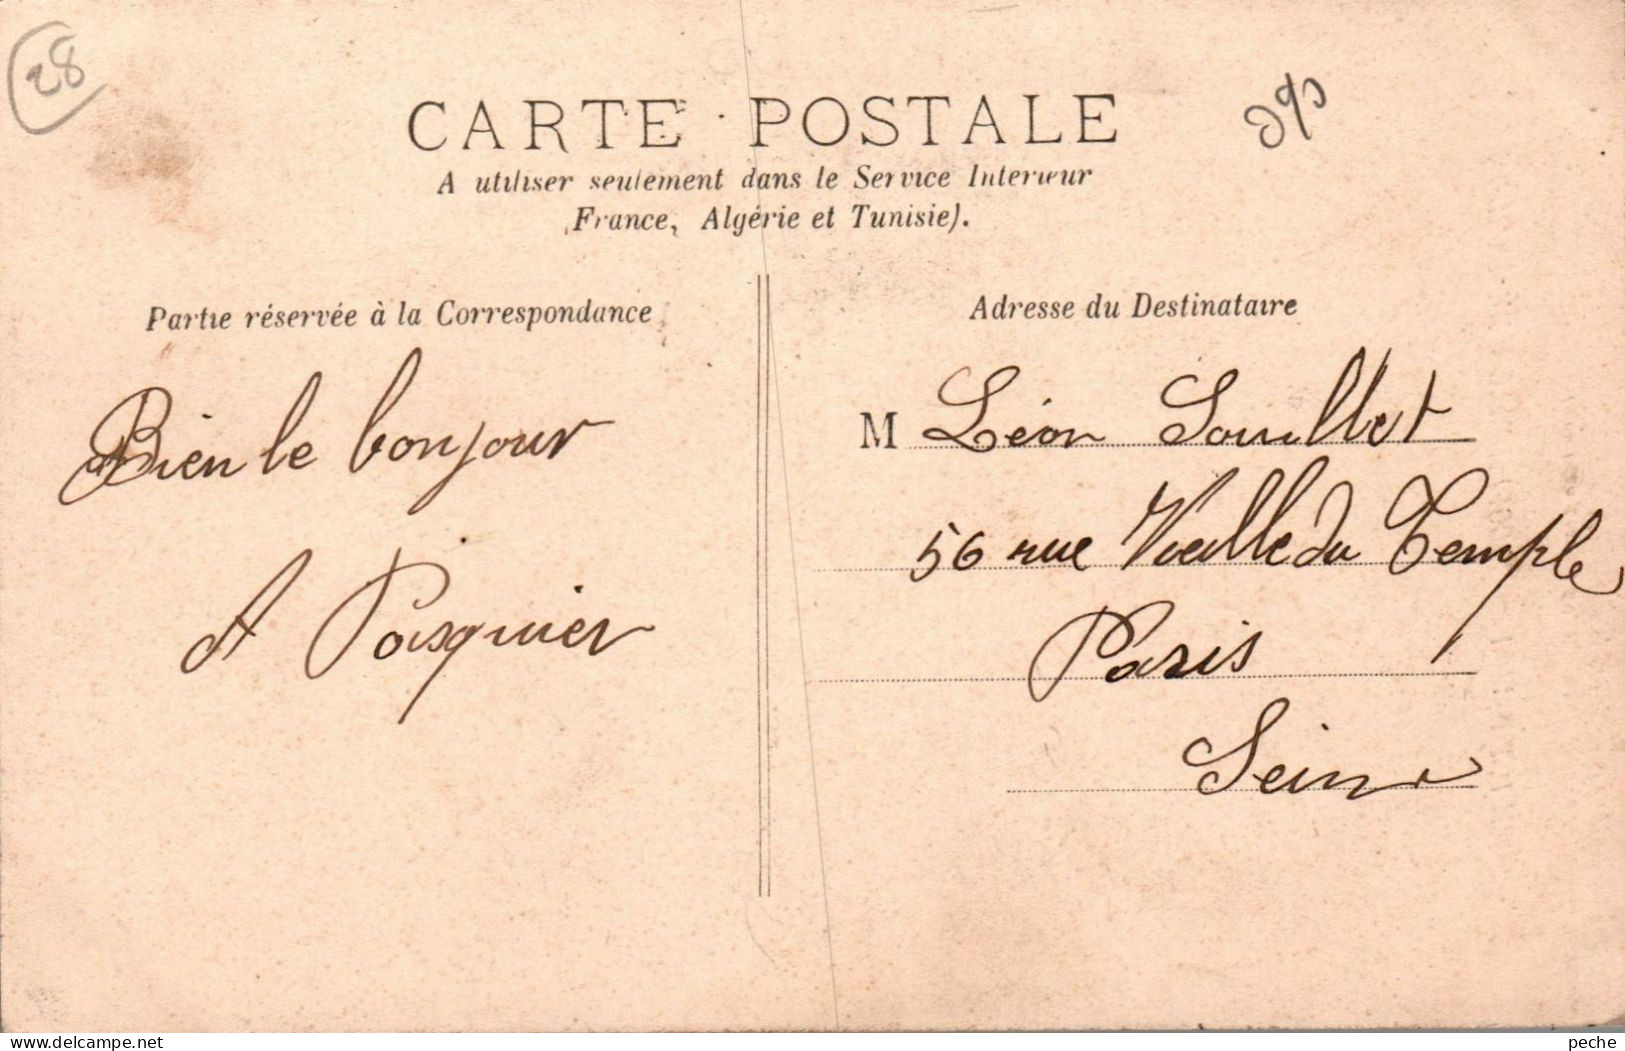 28
CARTE POSTALE
A utiliser seulement dans le Service Intérieur
(France, Algérie et Tunisie).
Partie réservée à la Correspondance
Bien le bonjour
A Pasquier
Adresse du Destinataire
M Léon Souillet
56 rue Vieille du Temple
Paris
Seine
www.delcampe.net
peche